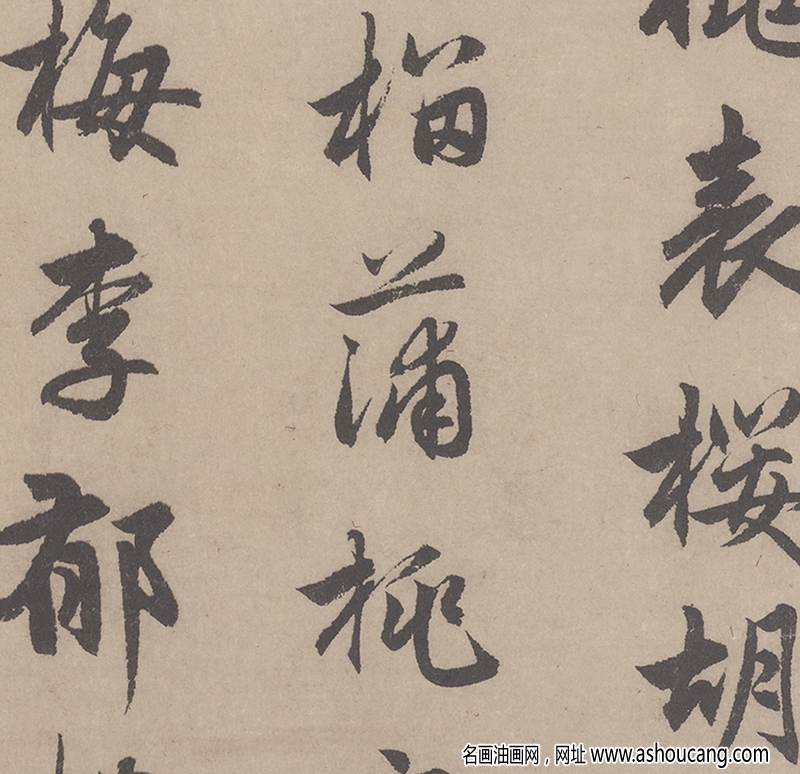 桃表桜胡
榴蒲桃
梅李郁
名画油画网，网址 www.ashoucang.com